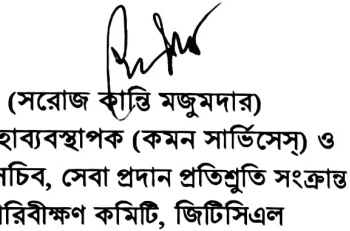 (সরোজ কান্তি মজুমদার)
হাব্যবস্থাপক (কমন সার্ভিসেস্) ও
সচিব, সেবা প্রদান প্রতিশ্রুতি সংক্রান্ত
রিবীক্ষণ কমিটি, জিটিসিএল